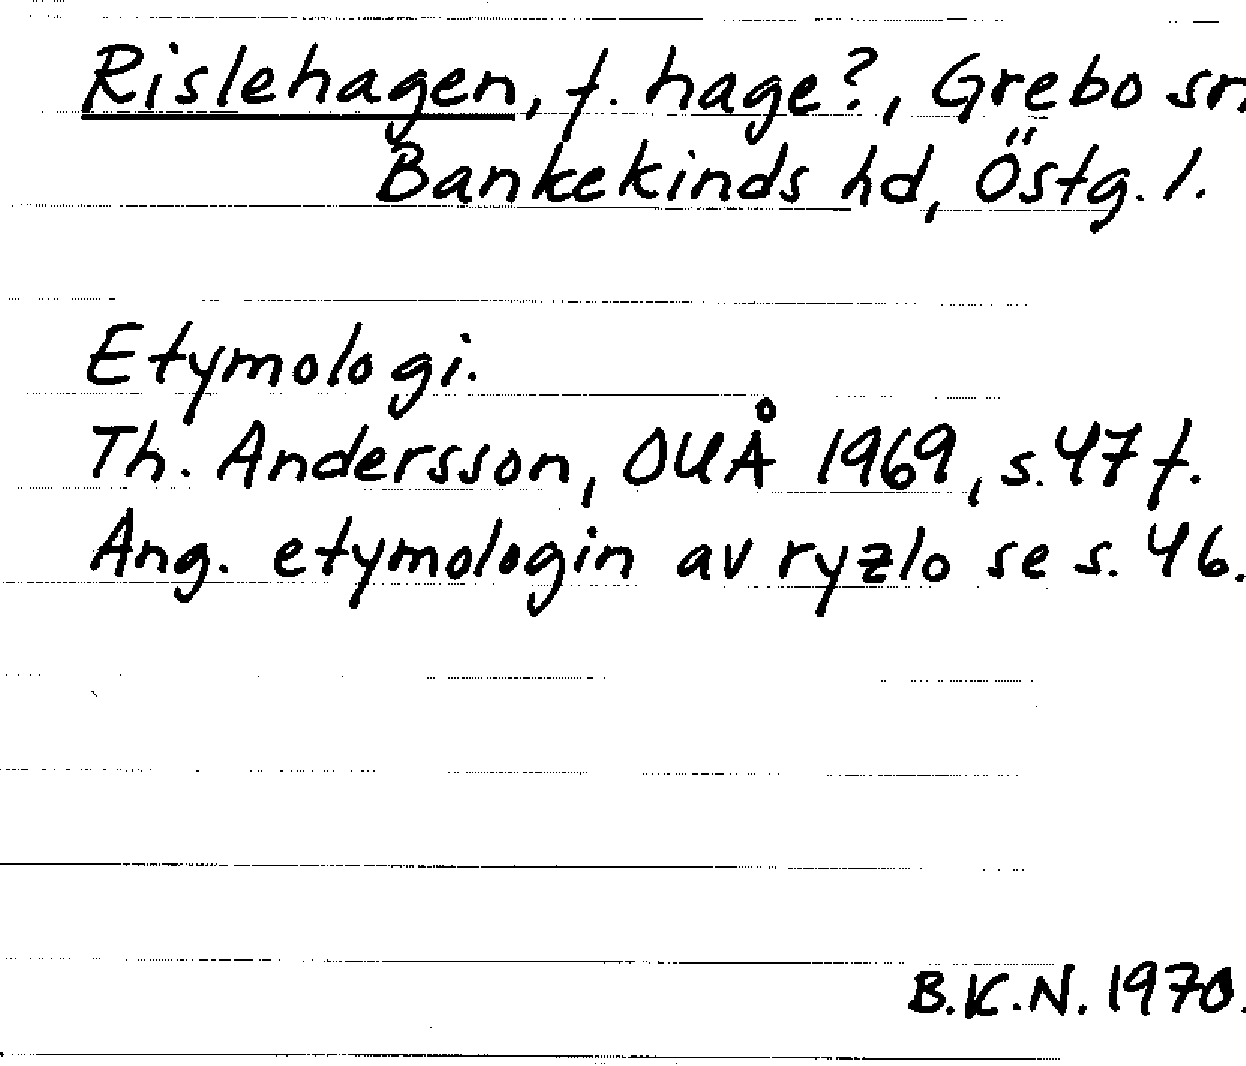 Rislehagen, f. hage?, Grebo sn,
Bankekinds hd, Östg. l.
Etymologi.
Th. Andersson, OUÅ 1969, s. 47 f.
Ang. etymologin av ryzlo se s. 46.
B.K.N. 1970.